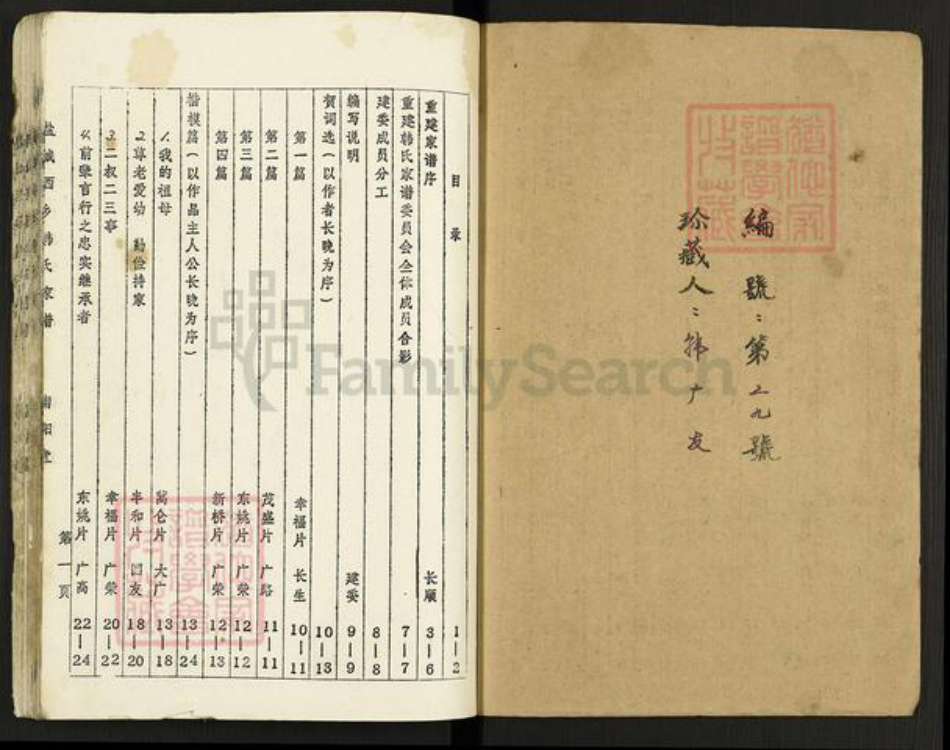 編號：第二九號
珍藏人：韩广友
目录 1—2
重建家谱序 长顺 3—6
重建韩氏家谱委员会全体成员合影 7—7
建委成员分工 8—8
编写说明 建委 9—9
贺词选（以作者长晚为序） 10—13
第一篇 幸福片 长生 10—11
第二篇 茂盛片 广路 11—11
第三篇 东姚片 广荣 12—12
第四篇 新桥片 广荣 12—13
楷模篇（以作品主人公长晚为序） 13—24
1.我的祖母 大广 13—18
2.尊老爱幼 勤俭持家 丰和片 国友 18—20
3.二叔二三事 幸福片 广荣 20—22
4.前辈言行之忠实继承者 东姚片 广高 22—24
盐城西乡韩氏家谱 南阳堂
第一页
FamilySearch